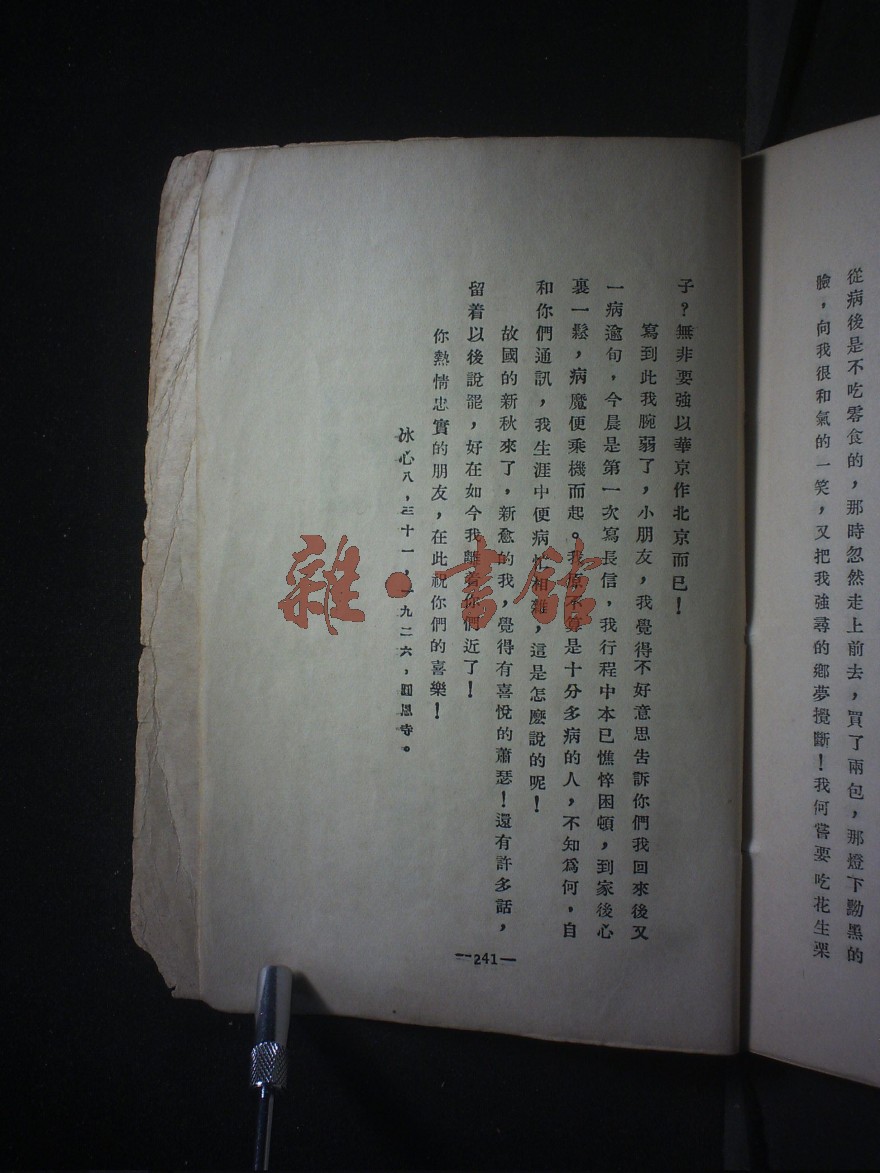 從病後是不吃零食的，那時忽然走上前去，買了兩包，那燈下黝黑的
臉，向我很和氣的一笑，又把我強尋的鄉夢攪斷！我何嘗要吃花生栗
子？無非要強以華京作北京而已！
寫到此我腕弱了，小朋友，我覺得不好意思告訴你們我回來後又
一病逾旬，今晨是第一次寫長信，我行程中本已憔悴困頓，到家後心
裏一鬆，病魔便乘機而起。我原不算是十分多病的人，不知爲何，自
和你們通訊，我生涯中便病忙相雜，這是怎麼說的呢！
故國的新秋來了，新愈的我，覺得有喜悅的蕭瑟！還有許多話，
留着以後說罷，好在如今我離着你們近了！
你熱情忠實的朋友，在此祝你們的喜樂！
冰心八，三十一，一九二六，圓恩寺。
—241—
雜·書館